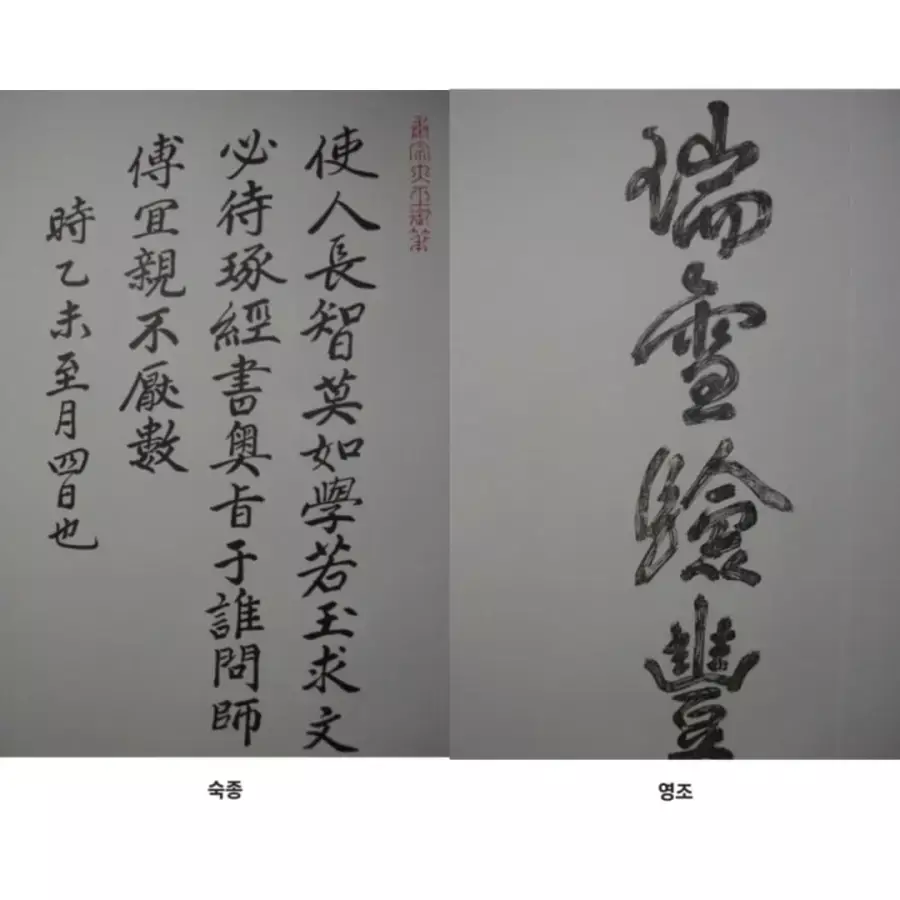 肅宗大王御筆
使人長智莫如學若玉求文
必待琢經書奧旨于誰問師
傅冝親不厭數
時乙未至月四日也
숙종
瑞雪驗豐
영조